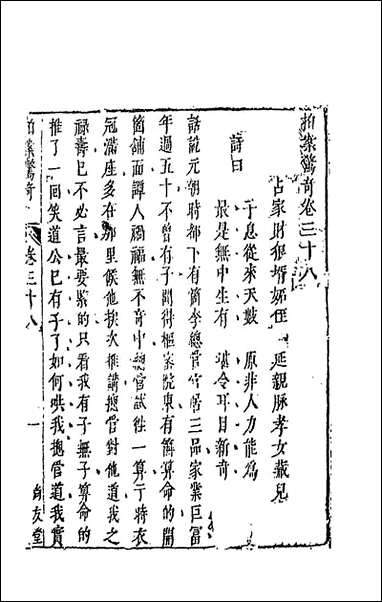 拍案驚奇卷三十八
占家財狠壻妬姪　延親脉孝女藏兒
詩曰
子息從來天數　原非人力能爲
最是無中生有　堪令耳目新奇
話說元朝時都下有箇李總管官居三品家業巨富
年過五十不曾有子聞得樞密院東有箇算命的開
箇鋪面譚人禍福無不奇中總管試往一算于時衣
冠滿座多在那里候他挨次推講總管對他道我之
祿壽已不必言最要緊的只看我有子無子算命的
推了一回笑道公已有子了如何哄我總管道我實
拍案驚奇
卷三十八
一
尚友堂